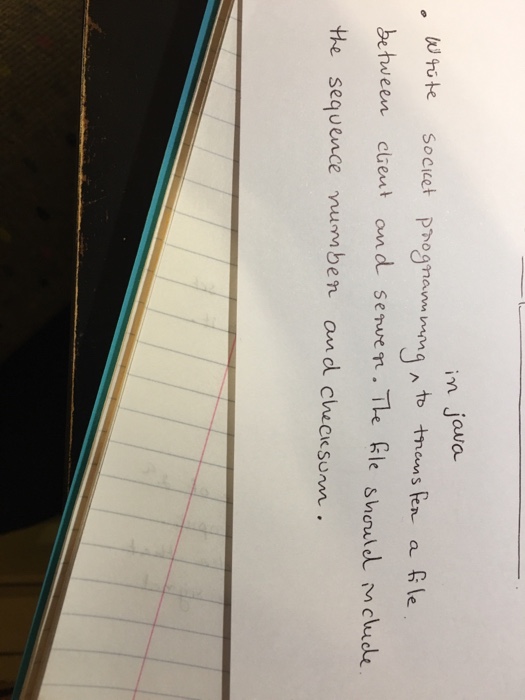 • Write socket programming ^ in java to transfer a file
between client and server. The file should include
the sequence number and checksum.